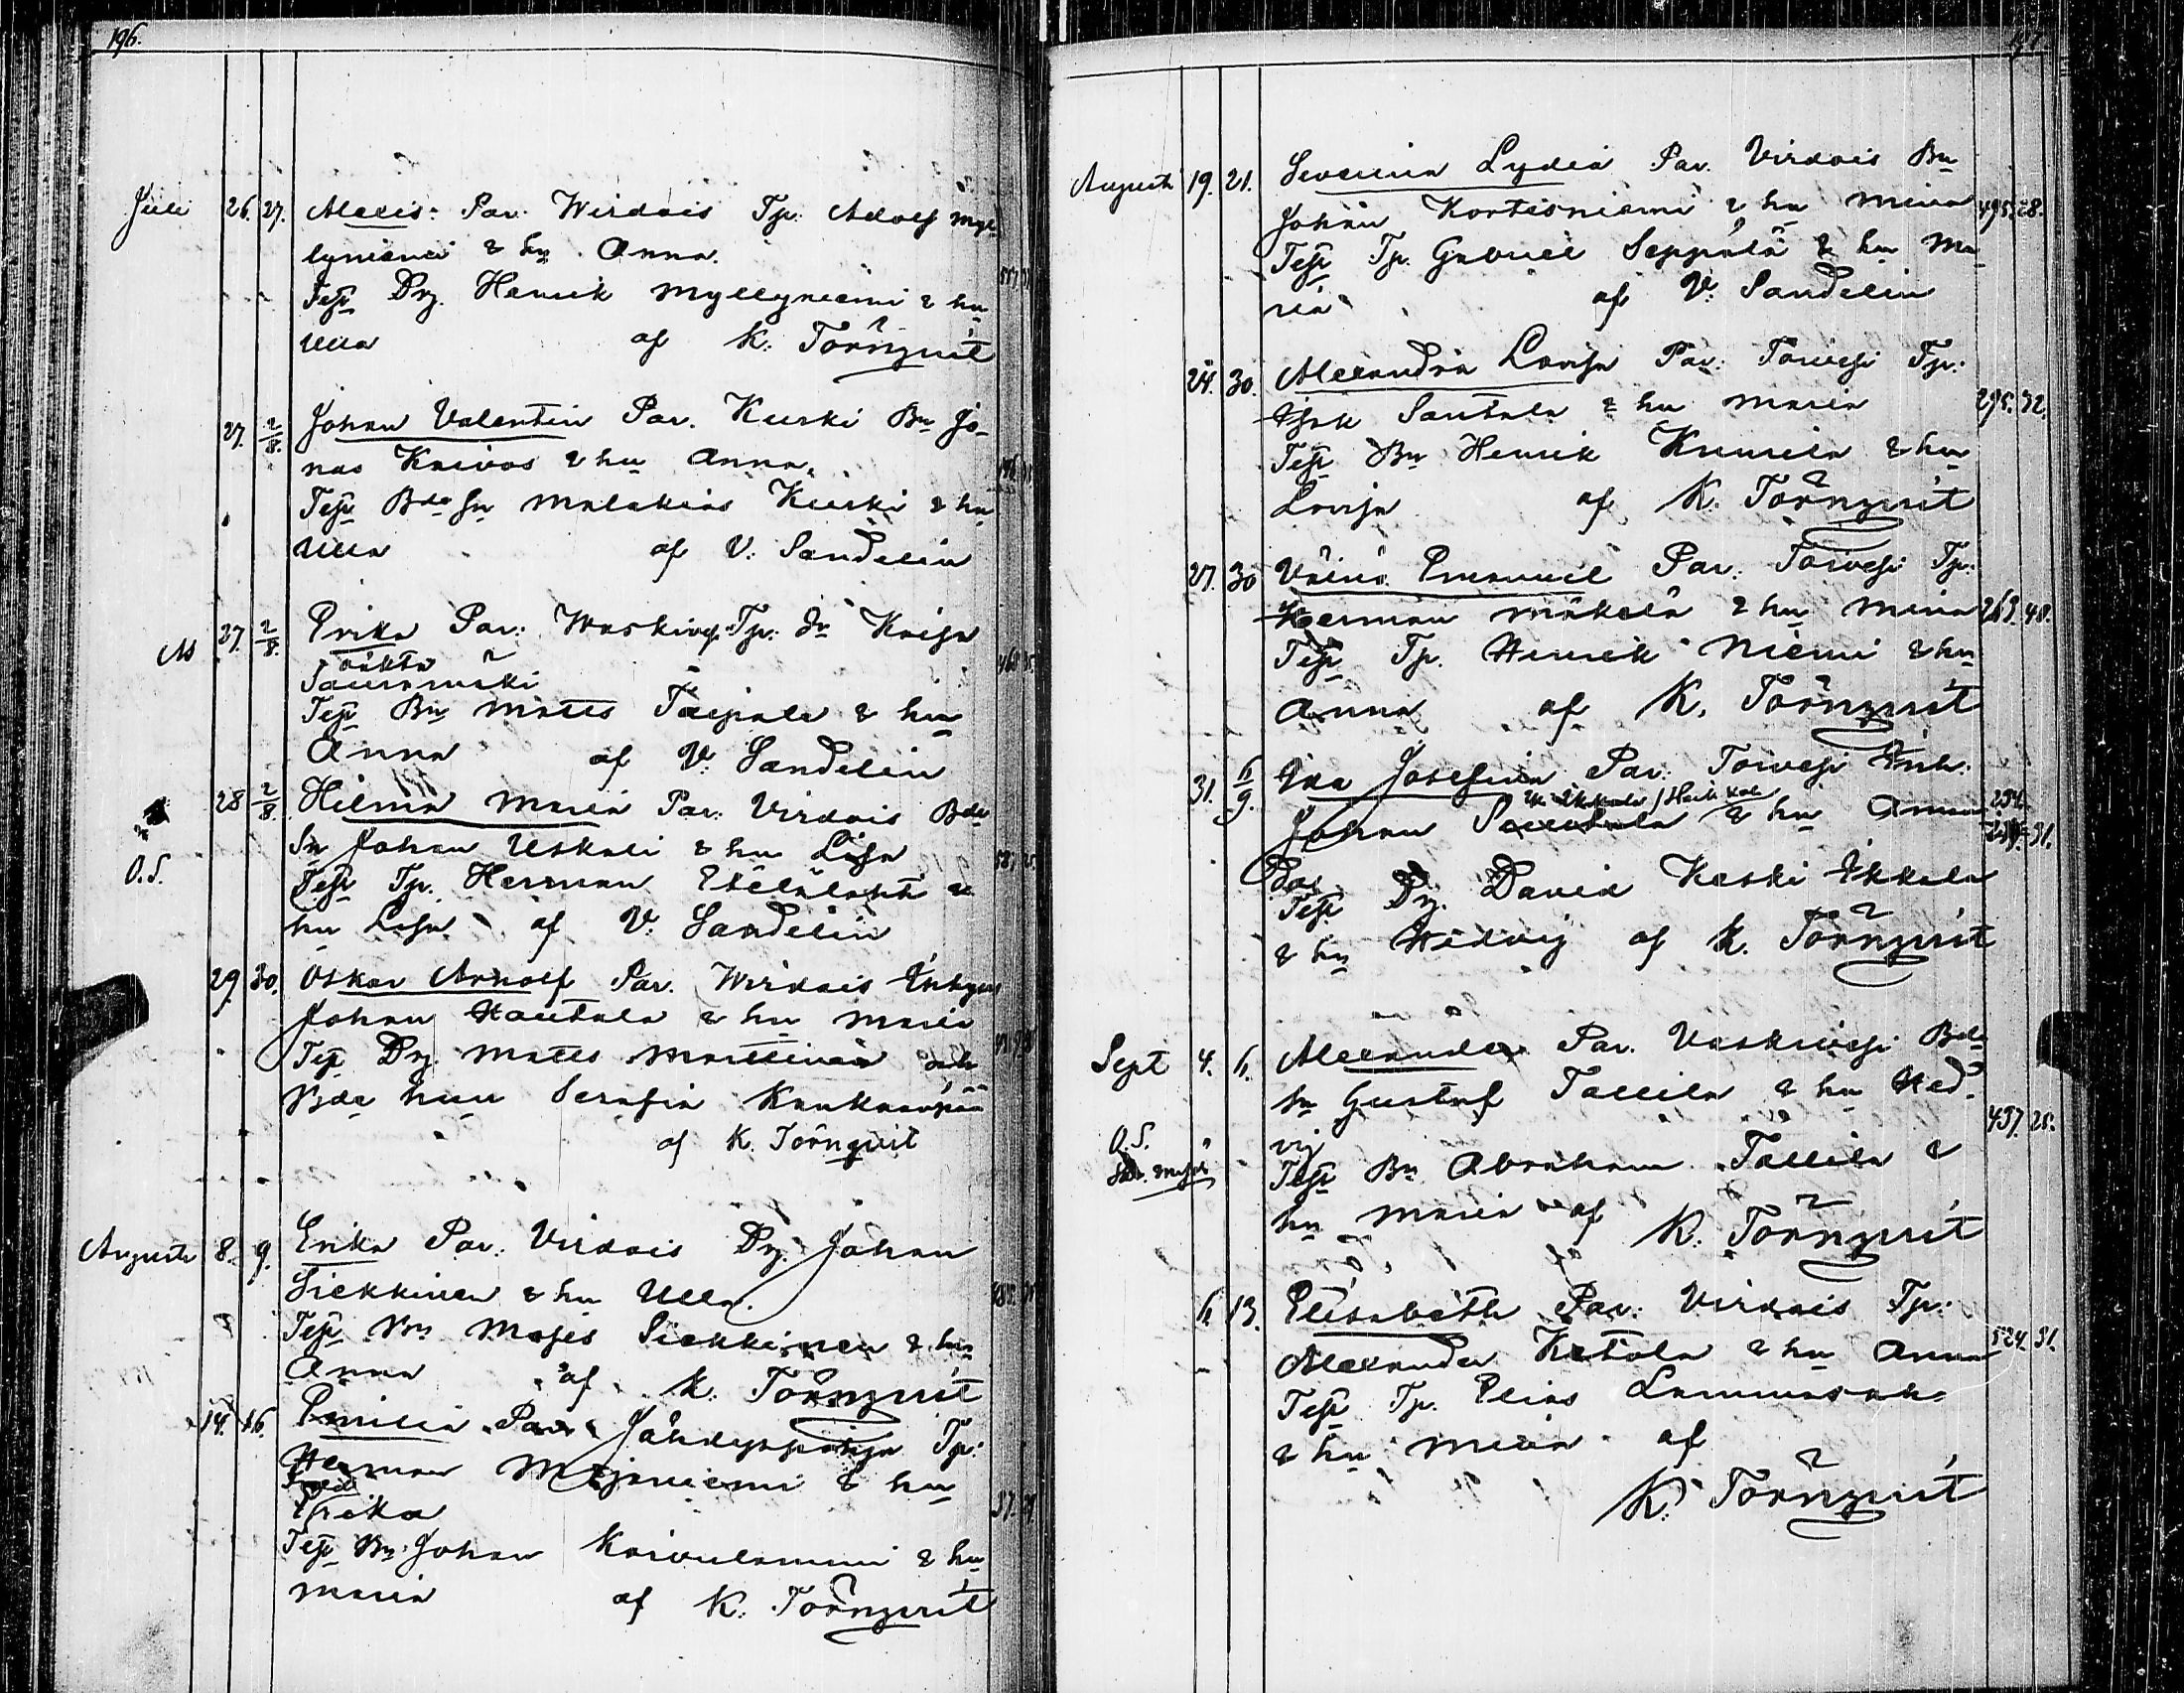 196.
Juli 26. 27. Alexis. Par. Wirdois Tp. Adolf Myl-
lyniemi & hu Anna.
Test Drg. Henrik Myllyniemi & hu
Ulla af K. Törnqvist
27. 2/8. Johan Valentin Par. Kurski Bn Jo-
nas Knivos & hu Anna.
Test Bde Sn Malakias Kurski & hu
Ulla af V. Sandelin
27. 2/8. Erika Par. Waskivesi Tp. dr Kaisa
Test Bn Matts Taipale & hu
Anna af V. Sandelin
28 2/8. Hilma Maria Par. Virdois Bde
Sn Johan Uskali & hu Lisa
O.S.
Test Tp. Herman Etelälahti &
hu Lisa af V. Sandelin
29. 30. Oskar Arnolf Par. Wirdois Inhyses
Johan Hautala & hu Maria
Test Drg. Matts Marttinen och
Bde hu Serafia Kaukaanpää
af K. Törnqvist
Augusti 8. 9. Erika Par. Virdois Drg. Johan
Siekkinen & hu Ulla.
Test Bn Moses Siekkinen & hu
Anna af K. Törnqvist
14. 16. Emilia Par. Jähdyspohja Tp.
Herman Majaniemi & hu
Erika
Test Bn Johan Koivulammi & hu
Maria af K. Törnqvist
Augusti 19. 21. Severina Lydia Par. Virdois Bn
Johan Kortesniemi & hu Mina 495. 28.
Test Tp. Gabriel Seppälä & hu Ma-
ria af V. Sandelin
24. 30. Alexandra Lovisa Par. Toivesi Tp.
Isak Santala & hu Maria 295. 32.
Test Bn Henrik Kumela & hu
Lovisa af K. Törnqvist
27. 30 Väinö Emanuel Par. Toivesi Tp.
Herman Mäkelä & hu Mina 263. 48.
Test Tp. Henrik Niemi & hu
Anna af K. Törnqvist
31. 6/9. Ida Josefina Par. Toivesi Inh.
Johan & hu Anna 31.
Test Drg. David Keski Ikkala
& hu Hedvig af K. Törnqvist
Sept 4. 6. Alexander Par. Vaskivesi Bde
sn Gustaf Tallila & hu Hed- 457. 28.
O.S. vij
Test Bn Abraham Tallila &
hu Maria af K. Törnqvist
6. 13. Elisabeth Par. Virdois Tp.
Alexander Ketola & hu Anna 524. 31.
Test Tp. Elias Lammasaho
& hu Maria af
K. Törnqvist